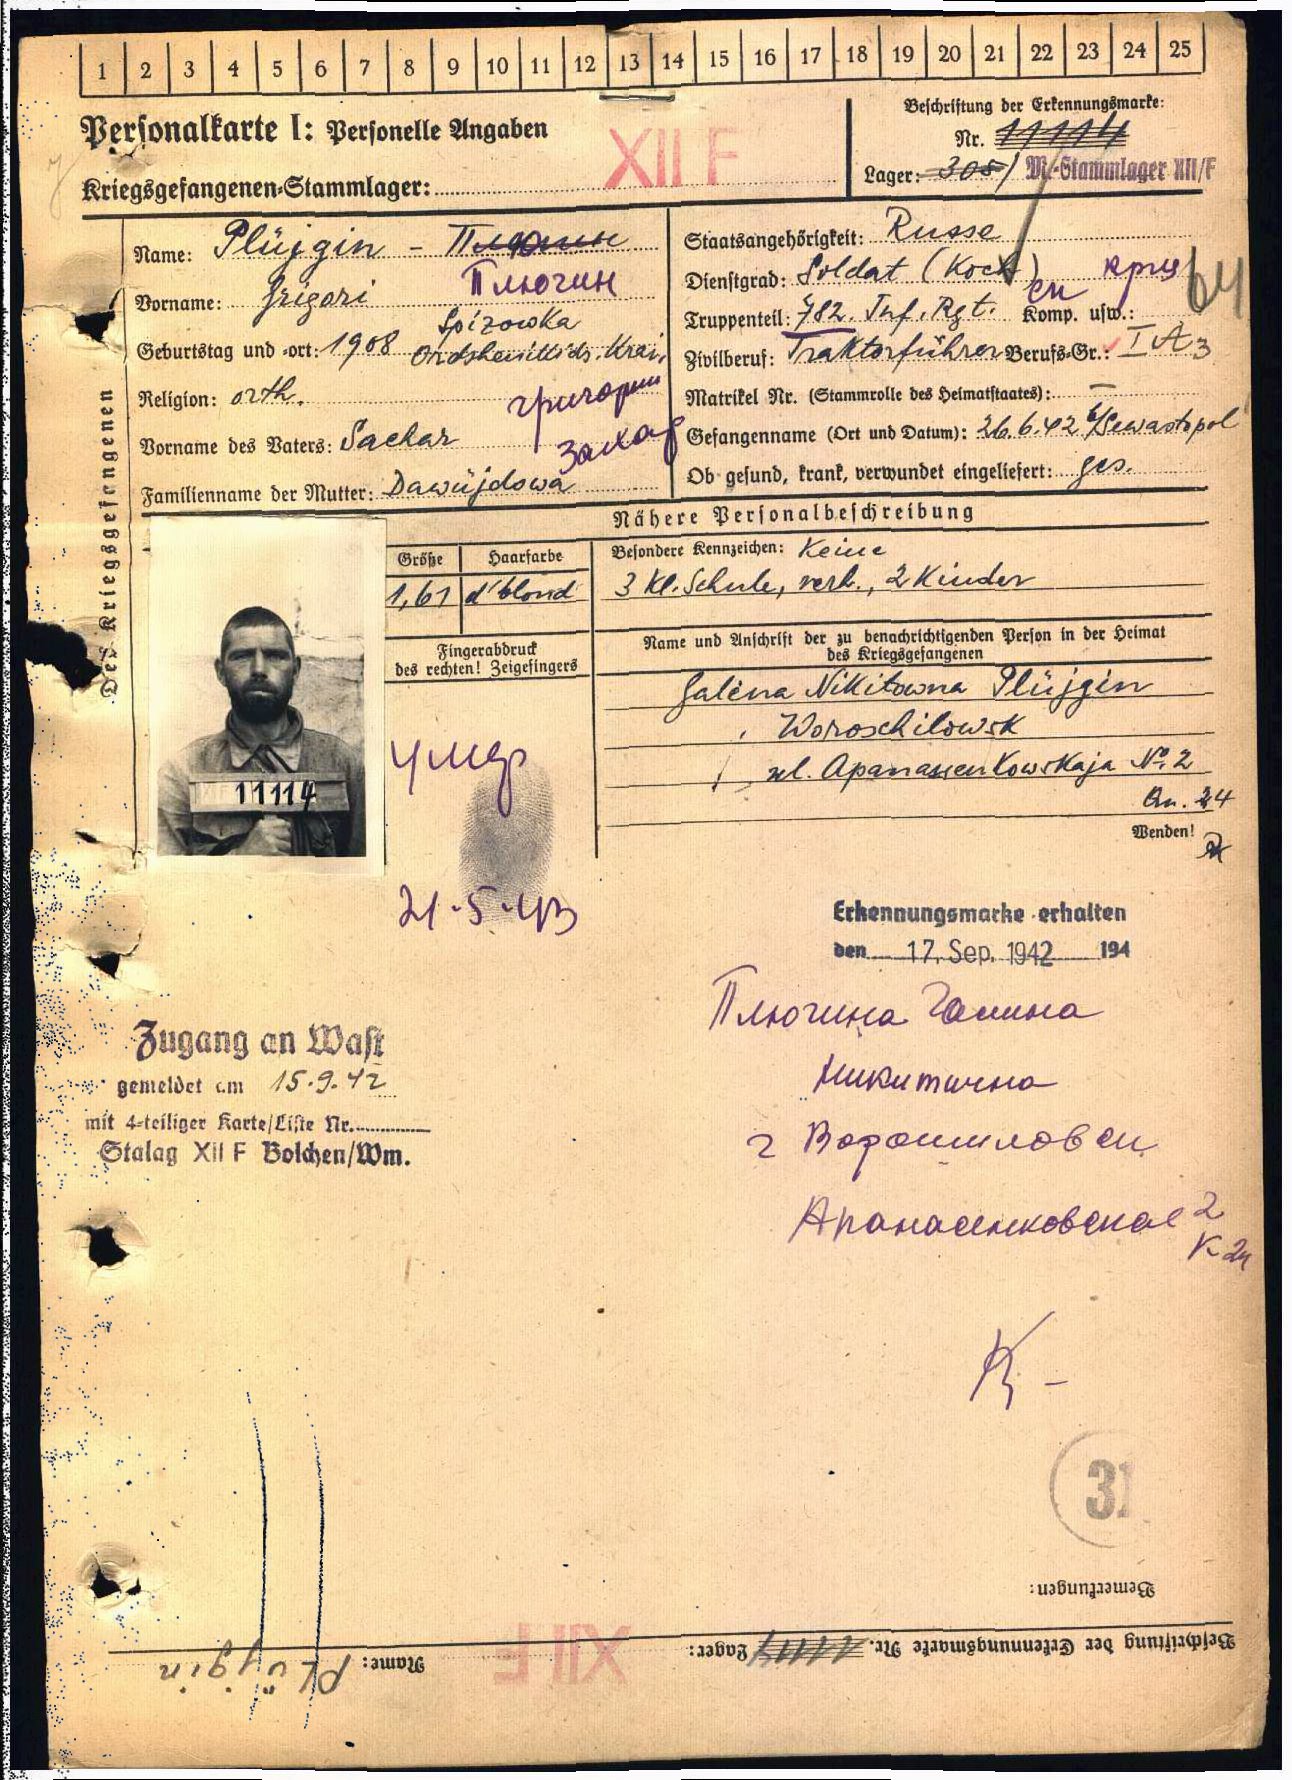 1 2 3 4 5 6 7 8 9 10 11 12 13 14 15 16 17 18 19 20 21 22 23 24 25
Personalkarte I: Personelle Angaben
XII F
Kriegsgefangenen-Stammlager:
Beschriftung der Erkennungsmarke:
Nr. 11114
Lager: 305 / M.-Stammlager XII/F
Des Kriegsgefangenen
Name: Plüjgin -
Плюгин
Vorname: Grigori
Geburtstag und -ort: 1908 Spizowka
Ordshenikids. Krai,
Religion: orth.
григорий
Vorname des Vaters: Sachar
Захар
Familienname der Mutter: Dawüjdowa
Staatsangehörigkeit: Russe
Dienstgrad: Soldat (Koch)
64
Truppenteil: 782. Inf. Rgt. Komp. usw.:
Zivilberuf: Traktorführer Berufs-Gr.: I A 3
Matrikel Nr. (Stammrolle des Heimatstaates): —
Gefangenname (Ort und Datum): 26.6.42 b/Sewastopol
Ob gesund, krank, verwundet eingeliefert: ges.
Nähere Personalbeschreibung
Größe Haarfarbe
1,61 d'blond
Besondere Kennzeichen: Keine
3 Kl. Schule, verh., 2 Kinder
Fingerabdruck
des rechten! Zeigefingers
Name und Anschrift der zu benachrichtigenden Person in der Heimat
des Kriegsgefangenen
Galena Nikitowna Plüjgin
Woroschilowsk
ul. Apanassenkowskaja No. 2
24
Wenden!
11114
умер
21.5.43
Erkennungsmarke erhalten
den 17. Sep. 1942 194
Плюгина Галина
Никитична
г Ворошиловск
Апанасенковская 2
К 24
Zugang an Wast
gemeldet am 15.9.42
mit 4-teiliger Karte/Liste Nr.
Stalag XII F Bolchen/Wm.
31
Bemerkungen:
Beschriftung der Erkennungsmarke Nr. 11114 Lager: XII F Name: Plüjgin